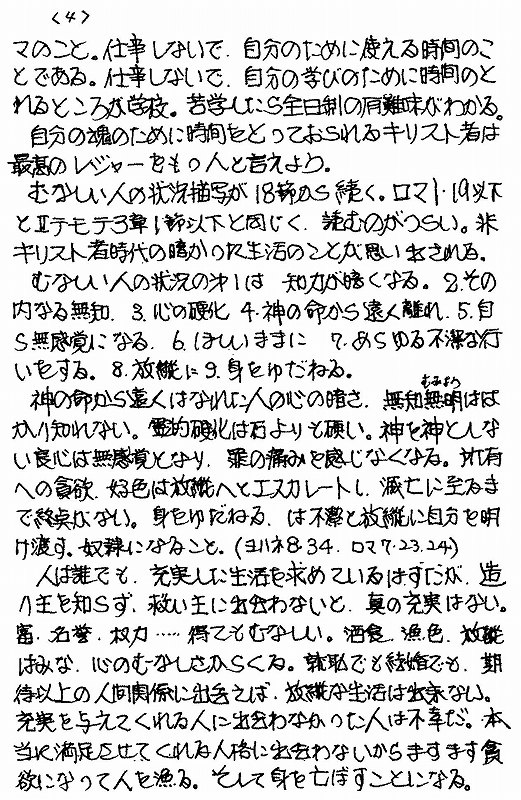 <4>
マのこと。仕事しないで、自分のために使える時間のこ
とである。仕事しないで、自分の学びのために時間のと
れるところが学校。苦学したら全日制の有難味がわかる。
自分の魂のために時間をとっておられるキリスト者は
最高のレジャーをもつ人と言えよう。
むなしい人の状況描写が18節から続く。ロマ1・19以下
とⅡテモテ3章1節以下と同じく、読むのがつらい。非
キリスト者時代の暗かった生活のことが思い出される。
むなしい人の状況の才1は 知力が暗くなる。2.その
内なる無知、3.心の硬化 4.神の命から遠く離れ、5.自
ら無感覚になる、6.ほしいままに 7.あらゆる不潔な行
いをする。8.放縦に9.身をゆだねる。
神の命から遠くはなれた人の心の暗さ、無知無明はは
かり知れない。霊的硬化は石よりも硬い。神を神としな
い良心は無感覚となり、罪の痛みを感じなくなる。所有
への貪欲、好色は放縦へとエスカレートし、滅亡に至るま
で終点がない。身をゆだねる、は不潔と放縦に自分を明
け渡す。奴隷になること。(ヨハネ8.34、ロマ7.23.24)
人は誰でも、充実した生活を求めているはずだが、造
り主を知らず、救い主に出会わないと、真の充実はない。
富、名誉、権力……得てもむなしい。酒食、漁色、放縦
はみな、心のむなしさからくる。就職でも結婚でも、期
待以上の人間関係に出会えば、放縦な生活は出来ない。
充実を与えてくれる人に出会わなかった人は不幸だ。本
当に満足させてくれる人格に出会わないからますます貪
欲になって人を漁る。そして身を亡ぼすことになる。